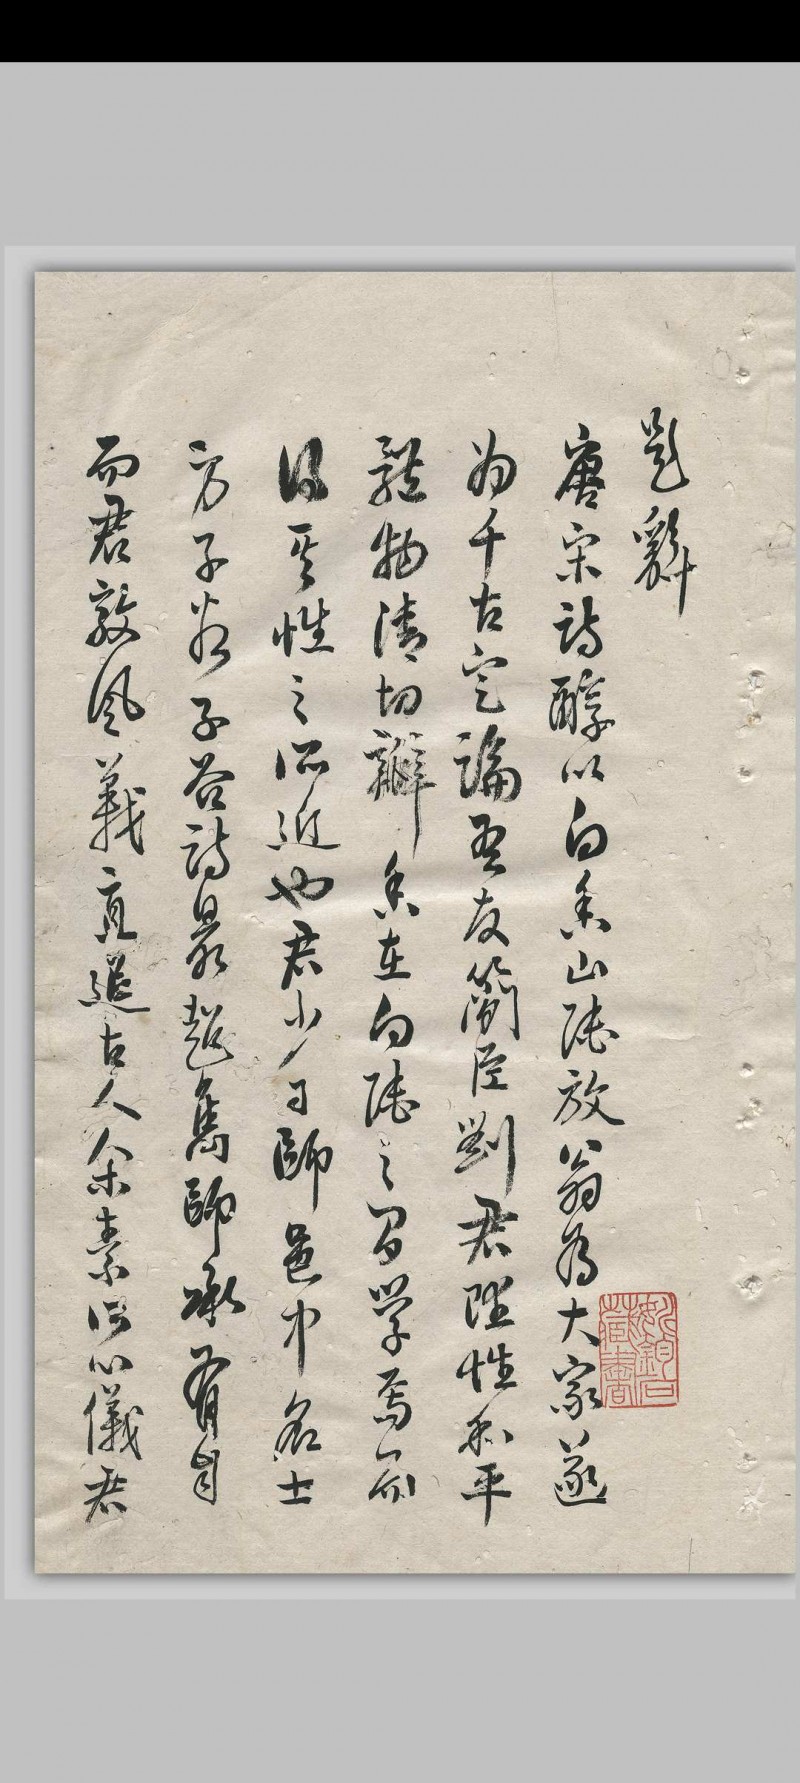 題辭
唐宋詩醇以白香山陸放翁為大家遂
為千古定論吾友簡臣劉君賦性和平
體物清切瓣香在白陸之間學焉而
得其性之所近也君少日師邑中名士
方子谷子谷詩最超雋師承有自
而君敦風義直追古人余素所心儀君
藏書